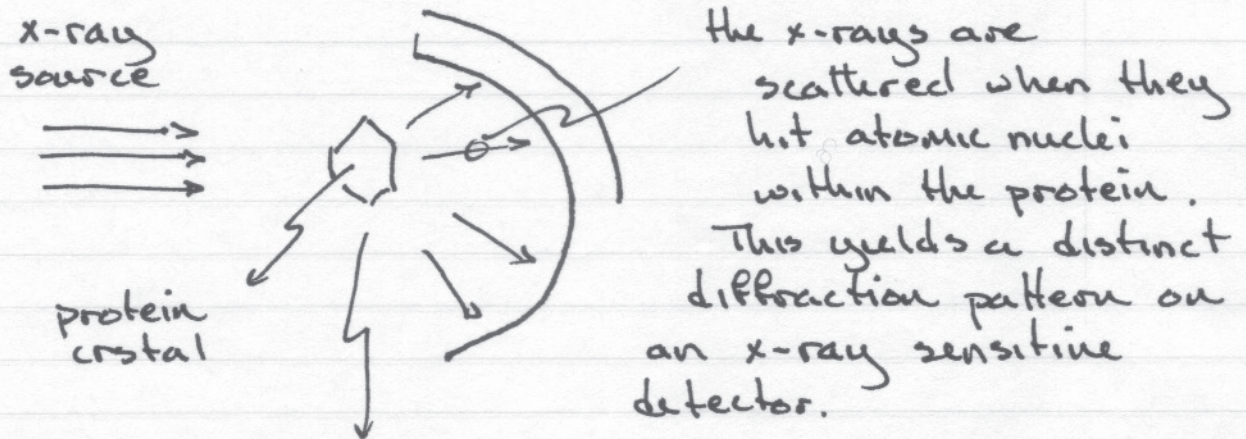 x-ray
source
protein
crstal
the x-rays are
scattered when they
hit atomic nuclei
within the protein.
This yields a distinct
diffraction pattern on
an x-ray sensitive
detector.